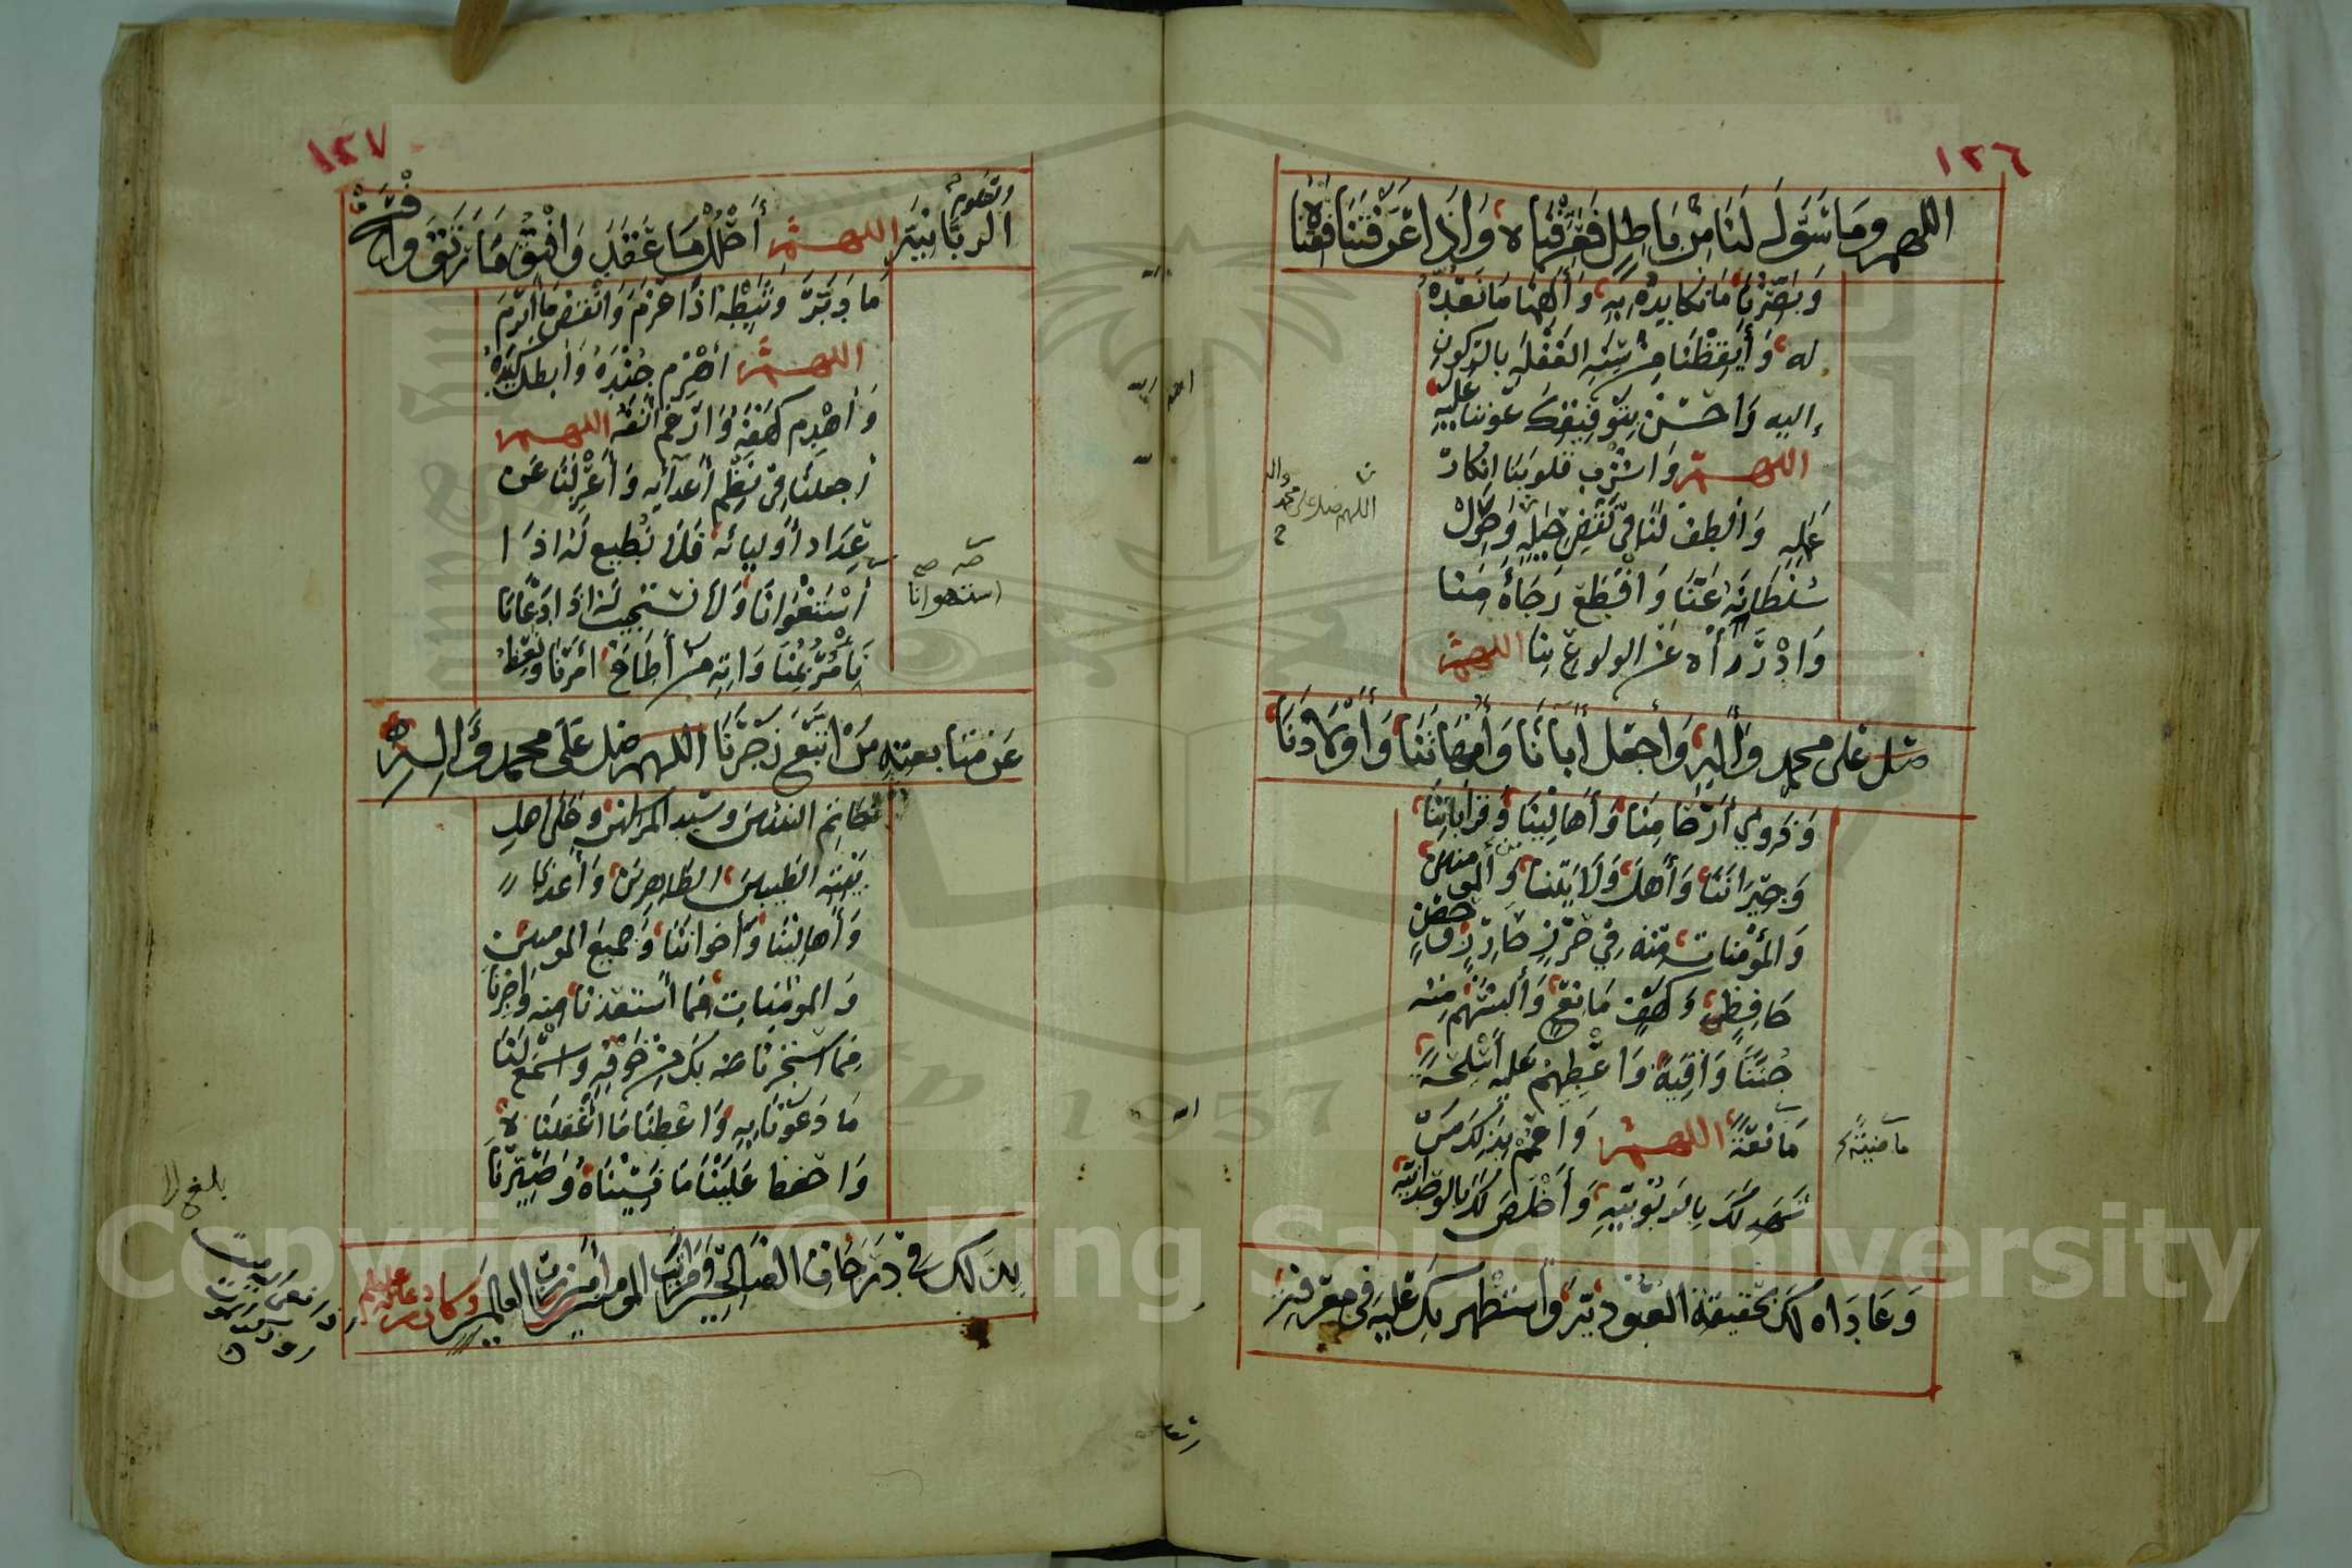 ١٢٦
اللهم وما سول لنا من باطل فعرفناه واذا عرفتناه فقناه
وبصرنا ما نكايده به والهمنا ما نعده
له وأيقظنا من سنة الغفلة بالركون
إليه واحسن بتوفيقك عوننا عليه
اللهم واشرب قلوبنا انكار
عمله والطف لنا في نقض حيله وحول
سلطانه عنا واقطع رجاءه منا
وادرأه عن الولوع بنا اللهم
صل على محمد وآله واجعل آباءنا وأمهاتنا وأولادنا
وذوي أرحامنا وأهالينا وقراباتنا
وجيراننا وأهل ولايتنا والمومنين
والمؤمنات منه في حرز حارز وحصن
حافظ وكهف مانع وألبسهم منه
جننا واقية واعطهم عليه أسلحة
مانعة اللهم واعمم بذلك من
شهد لك بالربوبية وأخلص لك بالوحدانية
وعاداه لك بحقيقة العبودية واستظهر بك عليه في معرفة
اللهم صل على محمد وال
ماضية
١٢٧
الربانية اللهم أحلل ما عقد وافتق ما رتق وافسخ
ما دبر وثبطه اذا عزم وانقض ما أبرم
اللهم اهزم جنده وابطل كيده
واهدم كهفه وارغم انفه اللهم
اجعلنا في نظم أعدآئه واعزلنا عن
عداد أوليائه فلا نطيع له اذا
استغوانا ولا نستجيب له اذا دعانا
استهوانا
نأمر بمناواته من أطاع امرنا ونعظ
عن متابعته من اتبع زجرنا اللهم صل على محمد وآله
خاتم النبيين وسيد المرسلين وعلى اهل
بيته الطيبين الطاهرين وأعذنا
وأهالينا وأخواننا وجميع المومنين
والمومنات مما أستعذنا منه واجرنا
مما استجرنا منه بك من خوفه واسمع لنا
ما دعونا به واعطنا ما اغفلناه
واحفظ علينا ما نسيناه وصيرنا
بذلك في درجات الصالحين ومراتب المومنين آمين رب العالمين وكان من دعائه عليه السلام